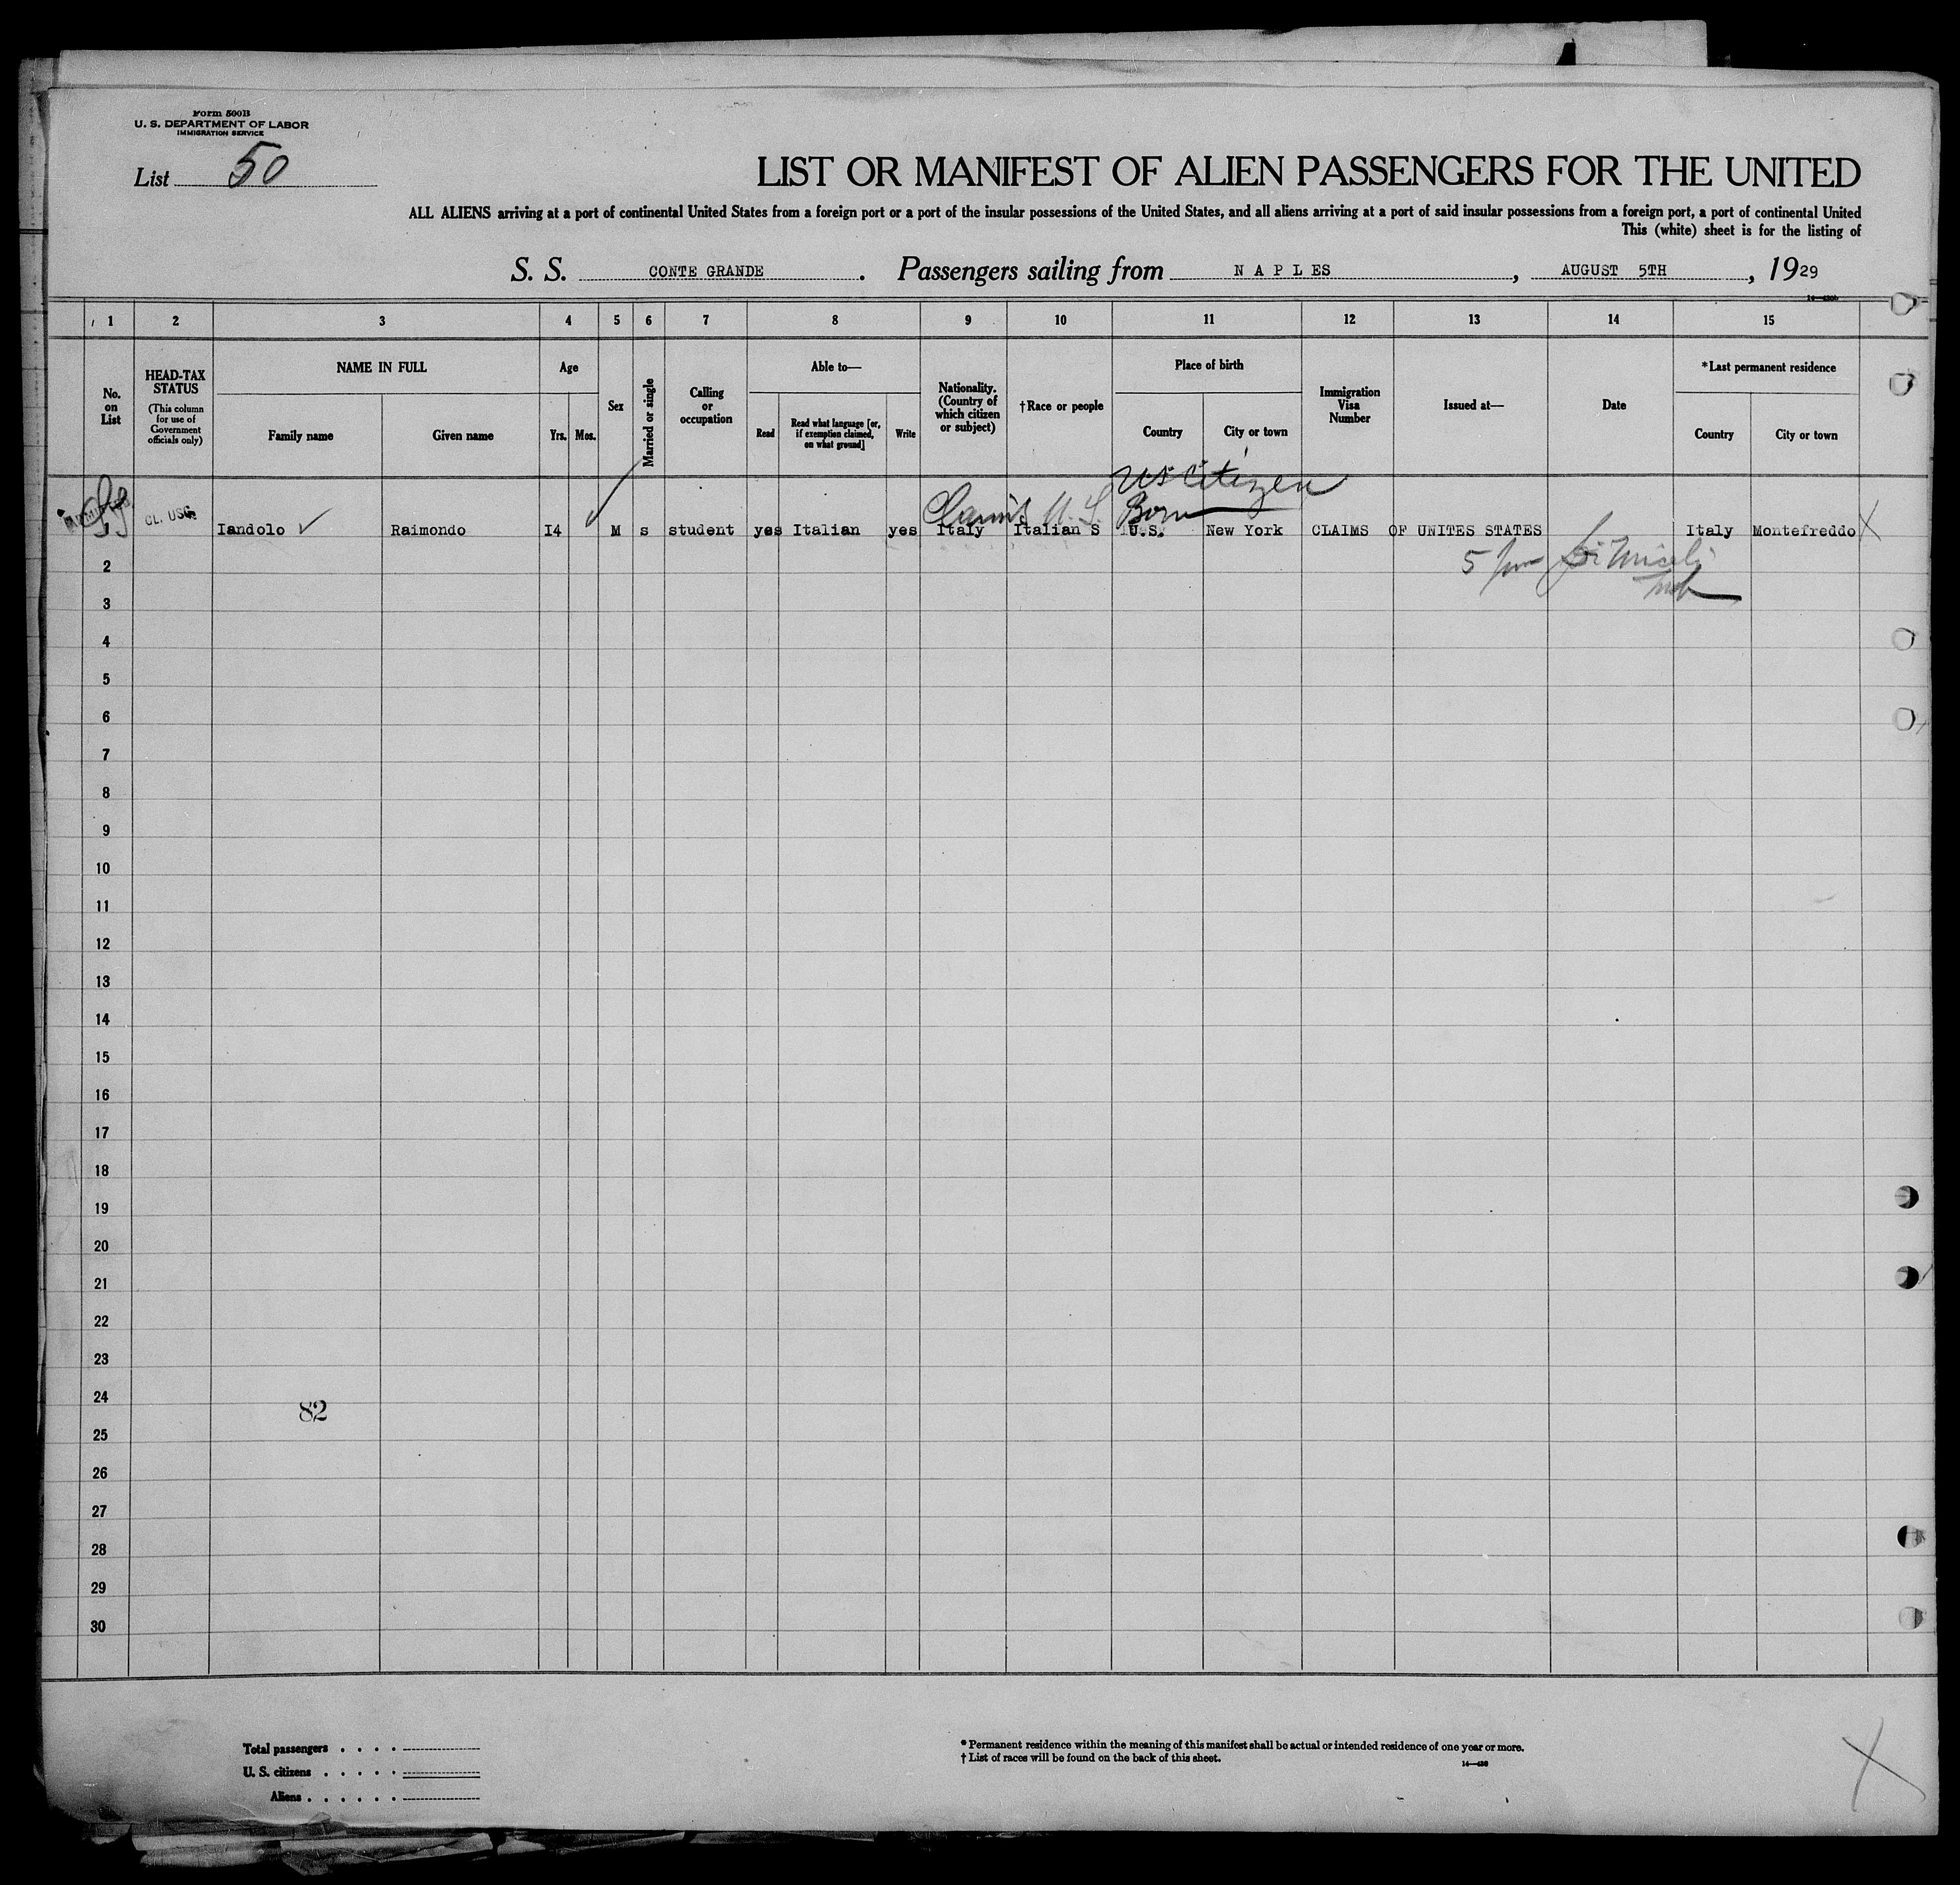 Form 500B
U. S. DEPARTMENT OF LABOR
IMMIGRATION SERVICE
List 50
LIST OR MANIFEST OF ALIEN PASSENGERS FOR THE UNITED
ALL ALIENS arriving at a port of continental United States from a foreign port or a port of the insular possessions of the United States, and all aliens arriving at a port of said insular possessions from a foreign port, a port of continental United
This (white) sheet is for the listing of
S. S. CONTE GRANDE. Passengers sailing from N A P L E S, AUGUST 5TH, 1929
1 2 3 4 5 6 7 8 9 10 11 12 13 14 15
No. on List
HEAD-TAX STATUS (This column for use of Government officials only)
NAME IN FULL
Family name
Given name
Age
Yrs.
Mos.
Sex
Married or single
Calling or occupation
Able to—
Read
Read what language [or, if exemption claimed, on what ground]
Write
Nationality. (Country of which citizen or subject)
†Race or people
Place of birth
Country
City or town
Immigration Visa Number
Issued at—
Date
*Last permanent residence
Country
City or town
US Citizen
Claims U.S. Born
CL. USC
Iandolo Raimondo I4 M s student yes Italian yes Italy Italian S U.S. New York CLAIMS OF UNITES STATES Italy Montefreddo
2
3
4
5
6
7
8
9
10
11
12
13
14
15
16
17
18
19
20
21
22
23
24
82
25
26
27
28
29
30
Total passengers
U. S. citizens
Aliens
* Permanent residence within the meaning of this manifest shall be actual or intended residence of one year or more.
† List of races will be found on the back of this sheet.